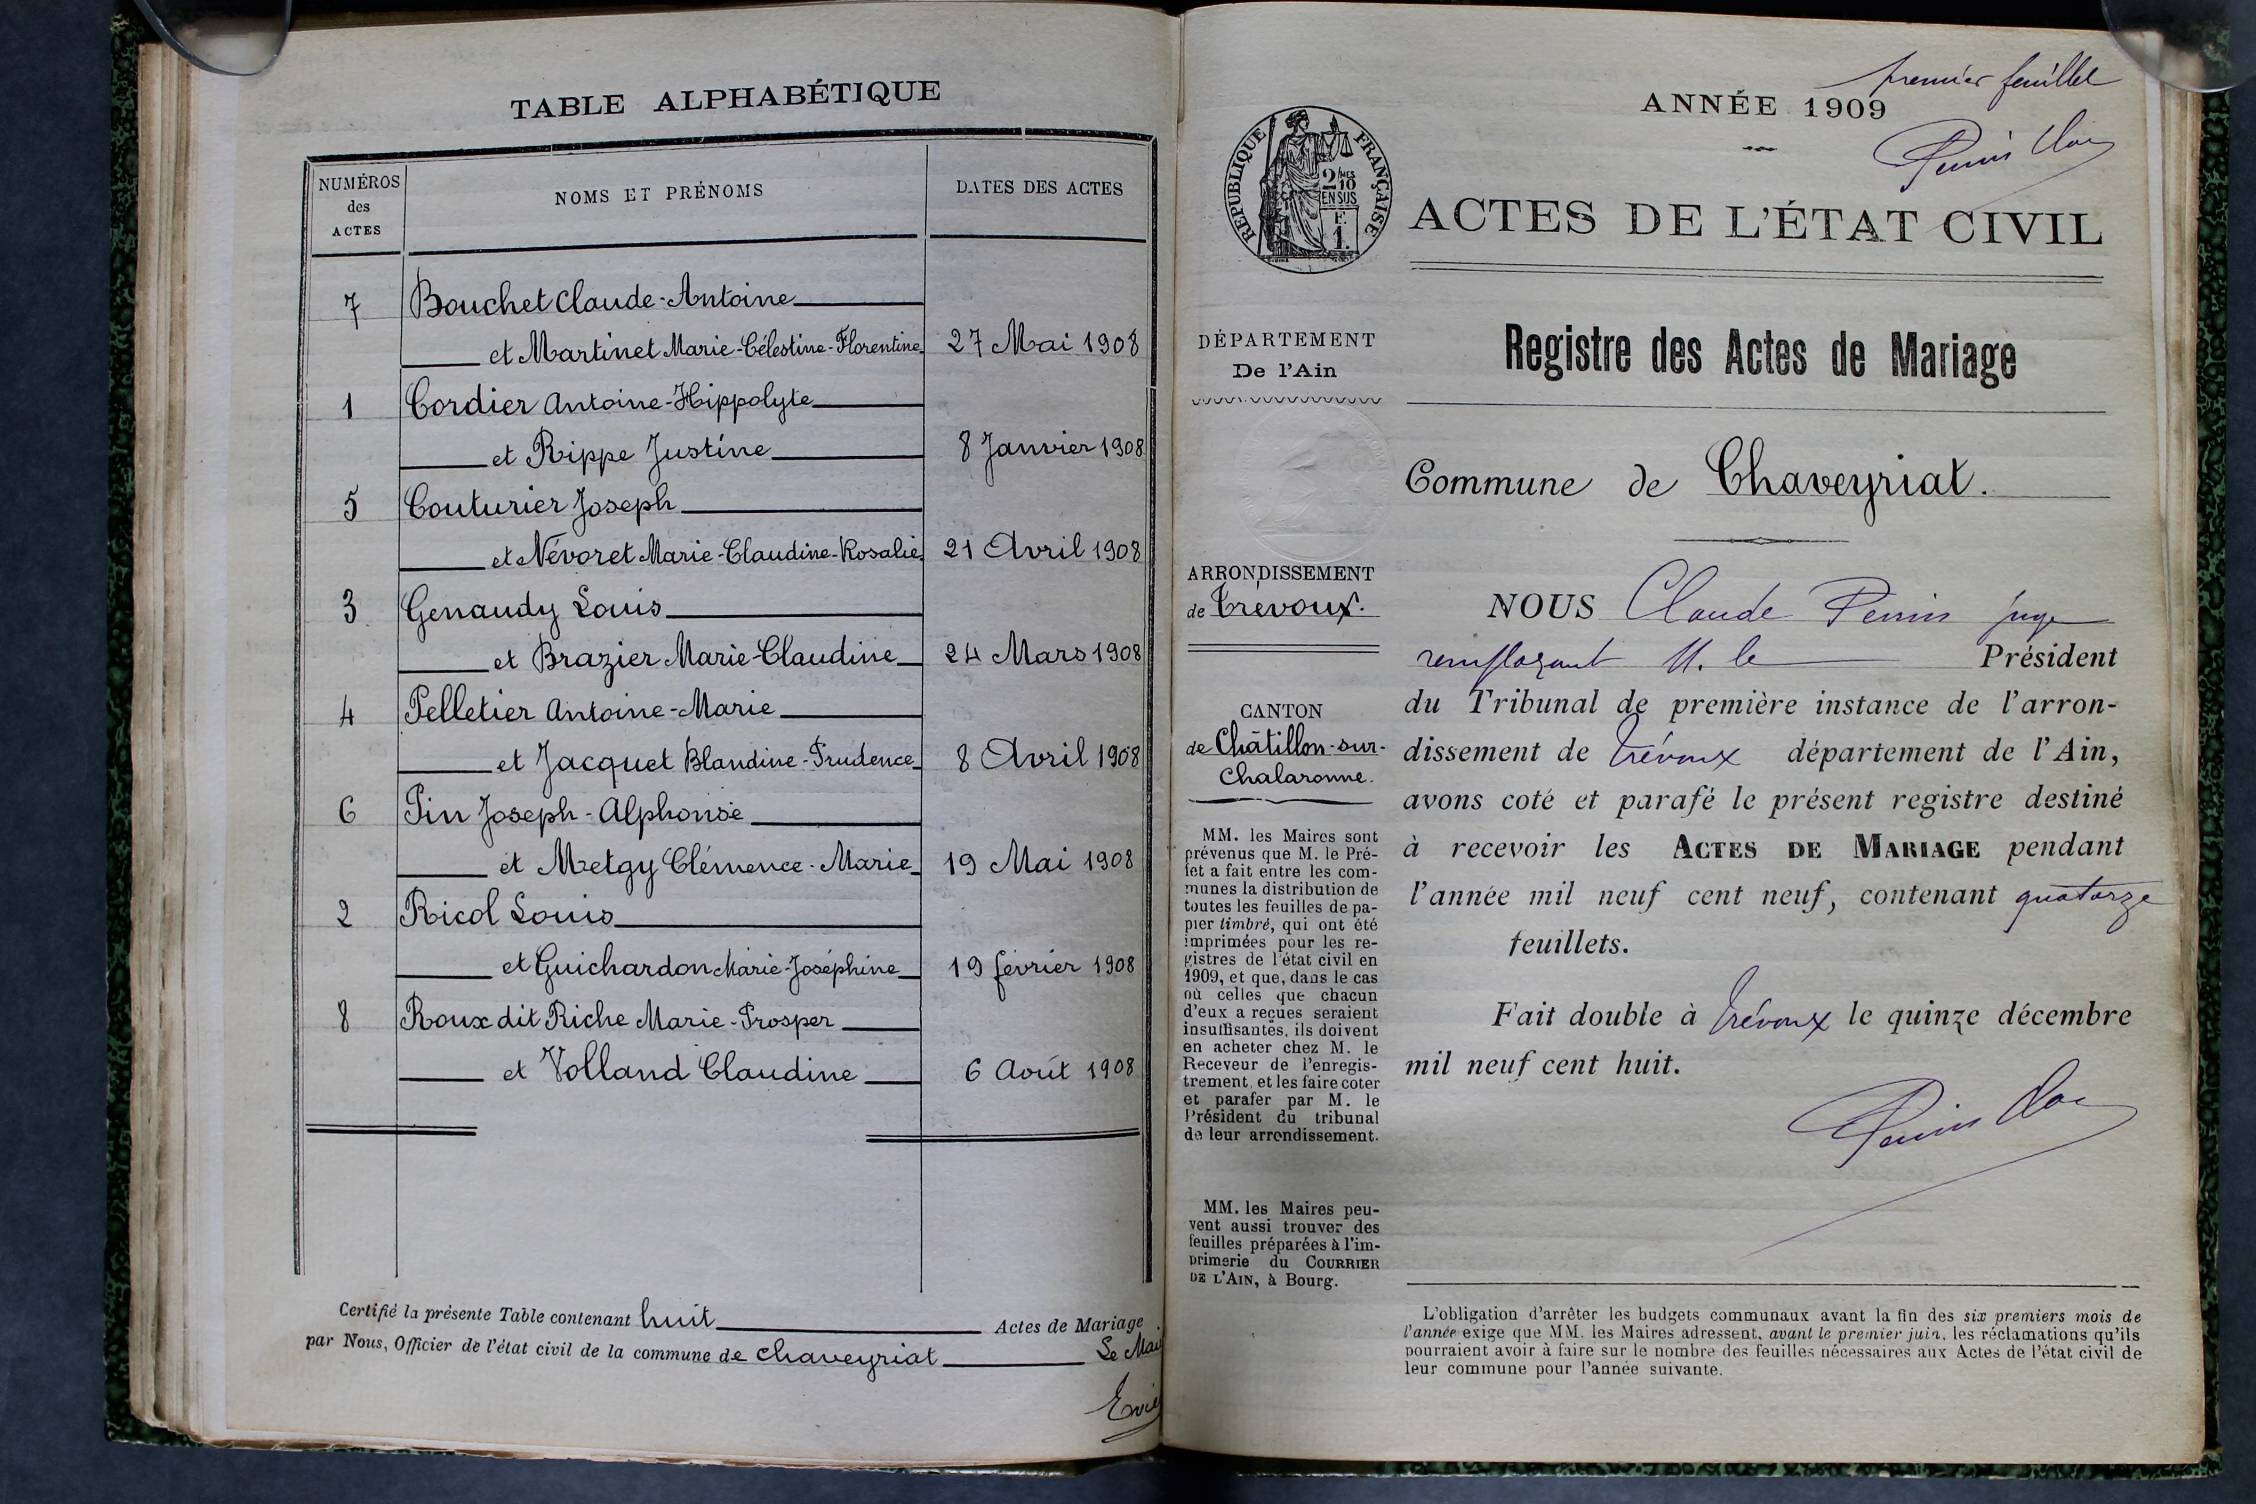 TABLE ALPHABÉTIQUE
NUMÉROS
des
ACTES
NOMS ET PRÉNOMS
DATES DES ACTES
7 Bouchet Claude-Antoine
et Martinet Marie-Célestine-Florentine 27 Mai 1908
1 Cordier Antoine-Hippolyte
et Rippe Justine 8 Janvier 1908
5 Couturier Joseph
et Névoret Marie-Claudine-Rosalie 21 Avril 1908
3 Genaudy Louis
et Brazier Marie-Claudine 24 Mars 1908
4 Pelletier Antoine-Marie
et Jacquet Blandine-Prudence 8 Avril 1908
6 Pin Joseph-Alphonse
et Metgy Clémence-Marie 19 Mai 1908
2 Ricol Louis
et Guichardon Marie-Joséphine 19 février 1908
8 Roux dit Riche Marie-Prosper
et Volland Claudine 6 Août 1908
Certifié la présente Table contenant huit Actes de Mariage
par Nous, Officier de l'état civil de la commune de Chaveyriat Le Mai
premier feuillet
ANNÉE 1909
RÉPUBLIQUE FRANÇAISE
2/10MES
EN SUS
F.
1.
ACTES DE L'ÉTAT CIVIL
DÉPARTEMENT
De l'Ain
ARRONDISSEMENT
de Trévoux.
CANTON
de Châtillon-sur-
Chalaronne.
MM. les Maires sont
prévenus que M. le Pré-
fet a fait entre les com-
munes la distribution de
toutes les feuilles de pa-
pier timbré, qui ont été
imprimées pour les re-
gistres de l'état civil en
1909, et que, dans le cas
où celles que chacun
d'eux a reçues seraient
insuffisantes, ils doivent
en acheter chez M. le
Receveur de l'enregis-
trement, et les faire coter
et parafer par M. le
Président du tribunal
de leur arrondissement.
MM. les Maires peu-
vent aussi trouver des
feuilles préparées à l'im-
primerie du COURRIER
DE L'AIN, à Bourg.
Registre des Actes de Mariage
Commune de Chaveyriat.
NOUS Claude Perrin juge
remplaçant M. le Président
du Tribunal de première instance de l'arron-
dissement de Trévoux département de l'Ain,
avons coté et parafé le présent registre destiné
à recevoir les ACTES DE MARIAGE pendant
l'année mil neuf cent neuf, contenant quatorze
feuillets.
Fait double à Trévoux le quinze décembre
mil neuf cent huit.
L'obligation d'arrêter les budgets communaux avant la fin des six premiers mois de
l'année exige que MM. les Maires adressent, avant le premier juin, les réclamations qu'ils
pourraient avoir à faire sur le nombre des feuilles nécessaires aux Actes de l'état civil de
leur commune pour l'année suivante.